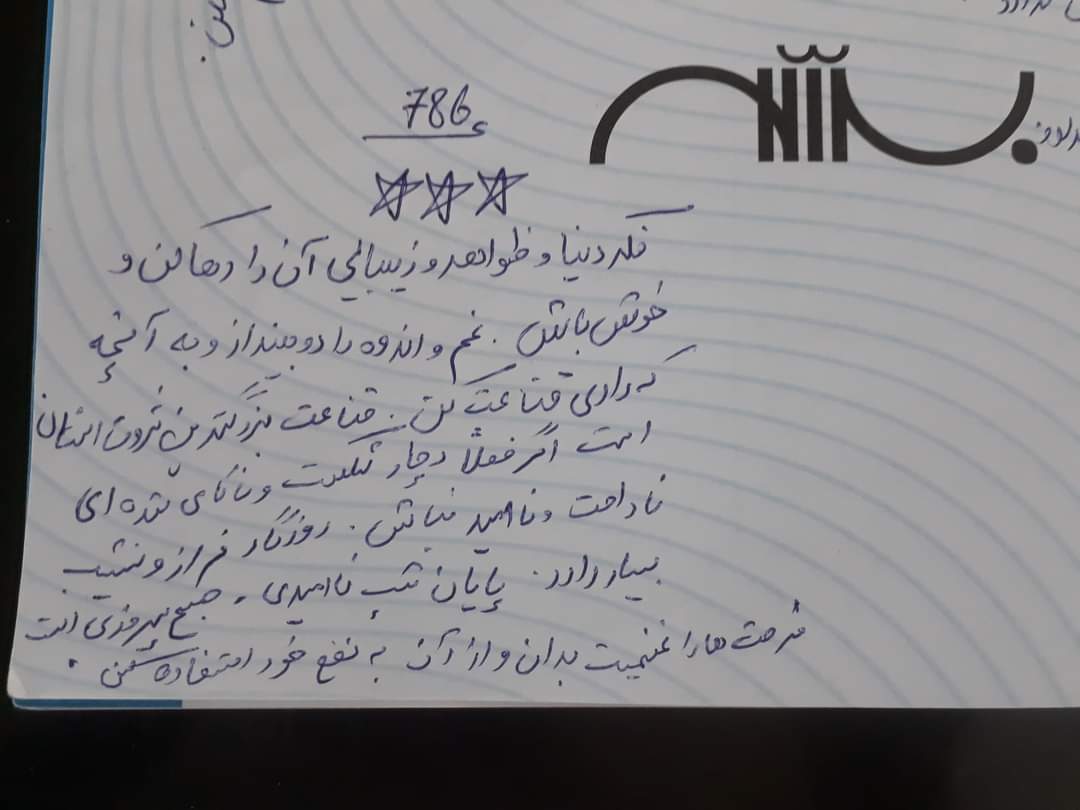 786
فکر دنیا و ظواهر و زیبایی آن را رها کن و
خوش باش. غم و اندوه را دور بینداز و به آنچه
که داری قناعت کن. قناعت بزرگترین ثروت انسان
است اگر فعلاً دچار شکست و ناکامی شده ای
ناراحت و ناامید نباش. روزگار فراز و نشیب
بسیار دارد. پایان شب ناامیدی، صبح پیروزی است
فرصت ها را غنیمت بدان و از آن به نفع خود استفاده کن.